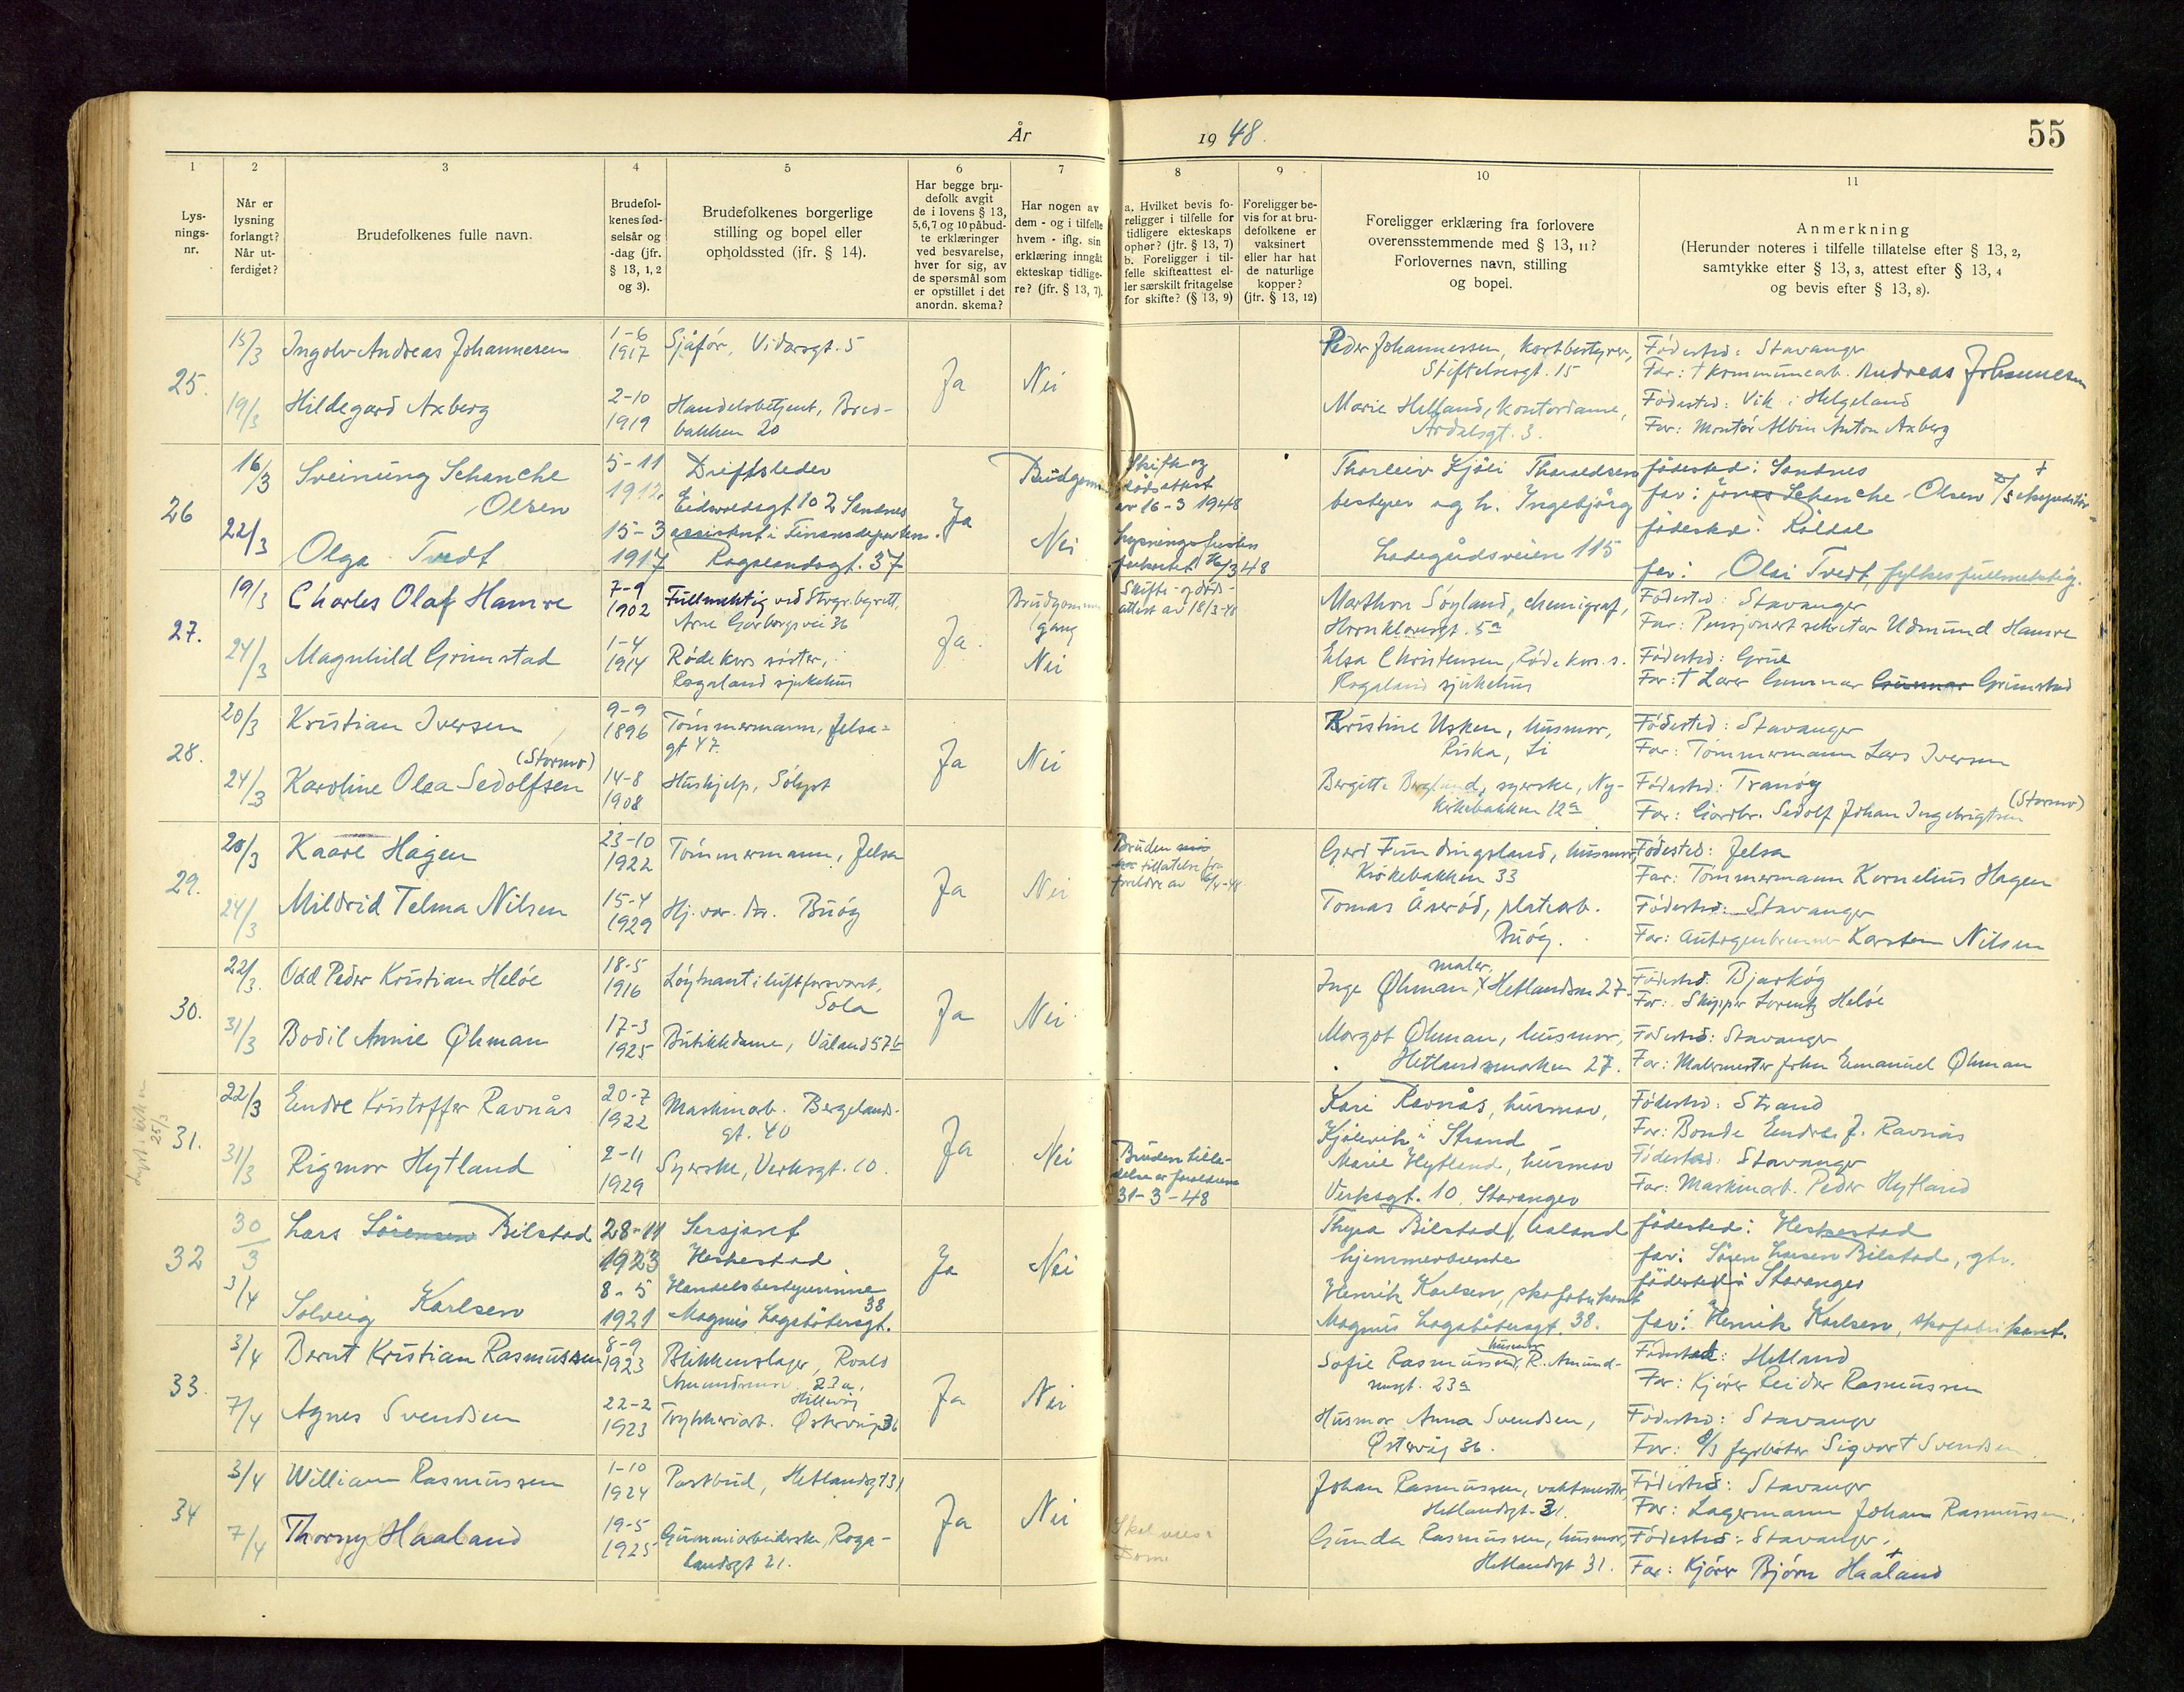 År 1948.
55
1
2
3
4
5
6
7
8
9
10
11
Lys-
nings-
nr.
Når er
lysning
forlangt?
Når ut-
ferdiget?
Brudefolkenes fulle navn.
Brudefol-
kenes fød-
selsår og
-dag (jfr.
§ 13, 1, 2
og 3).
Brudefolkenes borgerlige
stilling og bopel eller
opholdssted (jfr. § 14).
Har begge bru-
defolk avgit
de i lovens § 13,
5,6,7 og 10 påbud-
te erklæringer
ved besvarelse,
hver for sig, av
de spørsmål som
er opstillet i det
anordn. skema?
Har nogen av
dem - og i tilfelle
hvem - iflg. sin
erklæring inngått
ekteskap tidlige-
re? (jfr. § 13, 7).
a. Hvilket bevis fo-
religger i tilfelle for
tidligere ekteskaps
ophør? (jfr. § 13, 7)
b. Foreligger i til-
felle skifteattest el-
ler særskilt fritagelse
for skifte? (§ 13, 9)
Foreligger be-
vis for at bru-
defolkene er
vaksinert
eller har hat
de naturlige
kopper?
(jfr. § 13, 12)
Foreligger erklæring fra forlovere
overensstemmende med § 13, 11?
Forlovernes navn, stilling
og bopel.
Anmerkning
(Herunder noteres i tilfelle tillatelse efter § 13, 2,
samtykke efter § 13, 3, attest efter § 13, 4
og bevis efter § 13, 8).
25.
15/3
Ingolv Andreas Johannesen
1-6
1917
Sjåfør, Vidarsgt. 5
19/3
Hildegard Axberg
2-10
1919
Handelsbetjent, Bred-
bakken 20
Ja
Nei
Peder Johannessen, kortbestyrer,
Stiftelsesgt. 15
Marie Helland, kontordame,
Årdalsgt. 3.
Fødested: Stavanger
Far: † kommunearb. Andreas Johannesen
Fødested: Vik i Helgeland
Far: Montør Albin Anton Axberg
26
16/3
Sveinung Schanche
Olsen
5-11
1912
Driftsleder
Eidsvoldsgt 102 Sandnes
22/3
Olga Tvedt
15-3
1917
assistent i Finansdepartem.
Rogalandsgt. 37
Ja
Brudgom
Nei
Skifte og
dødsattest
av 16-3 1948
Lysningsfristen
forkortet 16/3 48
Thorleiv Kjøli Tharaldsen
bestyrer og h. Ingebjørg
Ladegårdsveien 115
fødested: Sandnes
far: Jonas Schanche Olsen
fødested: Røldal
far: Olai Tvedt, fylkesfullmektig.
27.
19/3
Charles Olaf Hamre
7-9
1902
Fullmektig ved Stvgr. byrett,
Arne Garborgsvei 36
24/3
Magnhild Grimstad
1-4
1914
Røde kors søster,
Rogaland sjukehus
Ja.
Brudgommen
gang
Nei
Skifte- og døds-
attest av 18/3-48
Marthon Søyland, chemigraf,
Hornklovesgt. 5a
Elsa Christensen, Røde kors s.
Rogaland sjukehus
Fødested: Stavanger
Far: Pensjonert sekretær Udmund Hamre
Fødested: Grue
Far: † Lærer Gunnar Gunnar Grimstad
28.
20/3
Kristian Iversen
9-9
1896
Tømmermann, Jelsa-
gt 47.
24/3
(Stormo)
Karoline Olea Sedolfsen
14-8
1908
Hushjelp, Sølyst
Ja
Nei
Kristine Usken, husmor,
Riska, Li
Bergitte Berglund, syerske, Ny-
kirkebakken 12a
Fødested: Stavanger
Far: Tømmermann Lars Iversen
Fødested: Tranøy
(Stormo)
Far: Gardbr. Sedolf Johan Ingebrigtsen
29.
20/3
Kaare Hagen
23-10
1922
Tømmermann, Jelsa
24/3
Mildrid Telma Nilsen
15-4
1929
Hj. vær. da. Buøy
Ja
Nei
Bruden
tillatelse fra
foreldre av 6/4-48
Gerd Finndingsland, husmor,
Kirkebakken 33
Tomas Åserød, platearb.
Buøy.
Fødested: Jelsa
Far: Tømmermann Kornelius Hagen
Fødested: Stavanger
Far: Autogenbrenner Karsten Nilsen
30.
22/3.
Odd Peder Kristian Heløe
18-5
1916
Løytnant i luftforsvaret,
Sola
31/3
Bodil Annie Øhman
17-3
1925
Butikkdame, Våland 57b
Ja
Nei
maler,
Inge Øhman, Hetlandsm 27.
Margot Øhman, husmor,
Hetlandsmarken 27.
Fødested: Bjarkøy
Far: Skipper Lorentz Heløe
Fødested: Stavanger
Far: Malermester John Emanuel Øhman
Lyst i kirken
25/3
31.
22/3
Endre Kristoffer Ravnås
20-7
1922
Maskinarb. Bergelands-
gt. 40
31/3
Rigmor Hytland
2-11
1929
Syerske, Verksgt. 10.
Ja
Nei
Bruden tilla-
telse av foreldrene
31-3-48
Kari Ravnås, husmor,
Kjølevik i Strand
Marie Hytland, husmor
Verksgt. 10. Stavanger
Fødested: Strand
Far: Bonde Endre J. Ravnås
Fødested: Stavanger
Far: Maskinarb. Peder Hytland
32
30/3
Lars Sørensen Bilstad
28-11
1923
Sersjant
Heskestad
3/4
Solveig Karlsen
8-5
1921
Handelsbestyrerinne
Magnus Lagabøtersgt. 38
Ja
Nei
Thyra Bilstad, Ualand
hjemmeværende
Henrik Karlsen, skofabrikant
Magnus Lagabøtersgt. 38.
fødested: Heskestad
far: Søren Larsen Bilstad, gbr.
fødested: Stavanger
far: Henrik Karlsen, skofabrikant.
33.
3/4
Bernt Kristian Rasmussen
8-9
1923
Blikkenslager, Roald
Amundsensgt. 23a,
Hillevåg
7/4
Agnes Svendsen
22-2
1923
Trykkeriarb. Østervåg 36
Ja
Nei
husmor
Sofie Rasmussen, R. Amund-
sensgt. 23a
Husmor Anna Svendsen,
Østervåg 36.
Fødested: Hetland
Far: Kjører Reidar Rasmussen
Fødested: Stavanger
Far: fyrbøter Sigvart Svendsen
34
3/4
William Rasmussen
1-10
1924
Postbud, Hetlandsgt 31
7/4
Thorny Haaland
19-5
1925
Gummiarbeiderske, Roga-
landsgt 21.
Ja
Nei
Johan Rasmussen, vaktmester,
Hetlandsgt. 31.
Gunda Rasmussen, husmor,
Hetlandsgt 31.
Fødested: Stavanger
Far: Lagermann Johan Rasmussen,
Fødested: Stavanger.
Far: Kjører Bjørn Haaland †